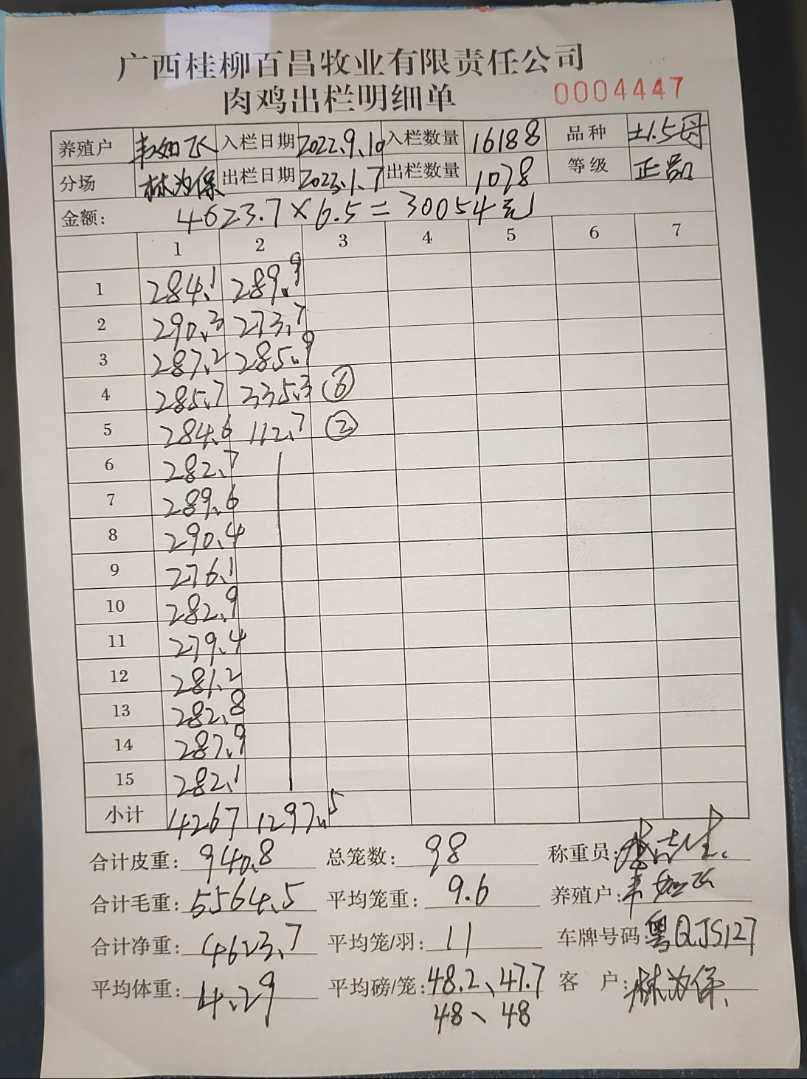 广西桂柳百昌牧业有限责任公司
肉鸡出栏明细单 0004447
养殖户 韦如飞 入栏日期 2022.9.10 入栏数量 16188 品种 土1.5母
分场 林为保 出栏日期 2023.1.7 出栏数量 1078 等级 正品
金额: 4623.7×6.5=30054元
1 2 3 4 5 6 7
1 284.1 289.9
2 290.3 273.7
3 287.2 285.9
4 285.7 335.3 ⑥
5 284.6 112.7 ②
6 282.7
7 289.6
8 290.4
9 276.1
10 282.9
11 279.4
12 281.2
13 282.8
14 287.9
15 282.1
小计 4267 1297.5
合计皮重: 940.8 总笼数: 98 称重员:
合计毛重: 5564.5 平均笼重: 9.6 养殖户: 韦如飞
合计净重: 4623.7 平均笼/羽: 11 车牌号码: 粤QJS127
平均体重: 4.29 平均磅/笼: 48.2、47.7 客 户: 林为保
48、48